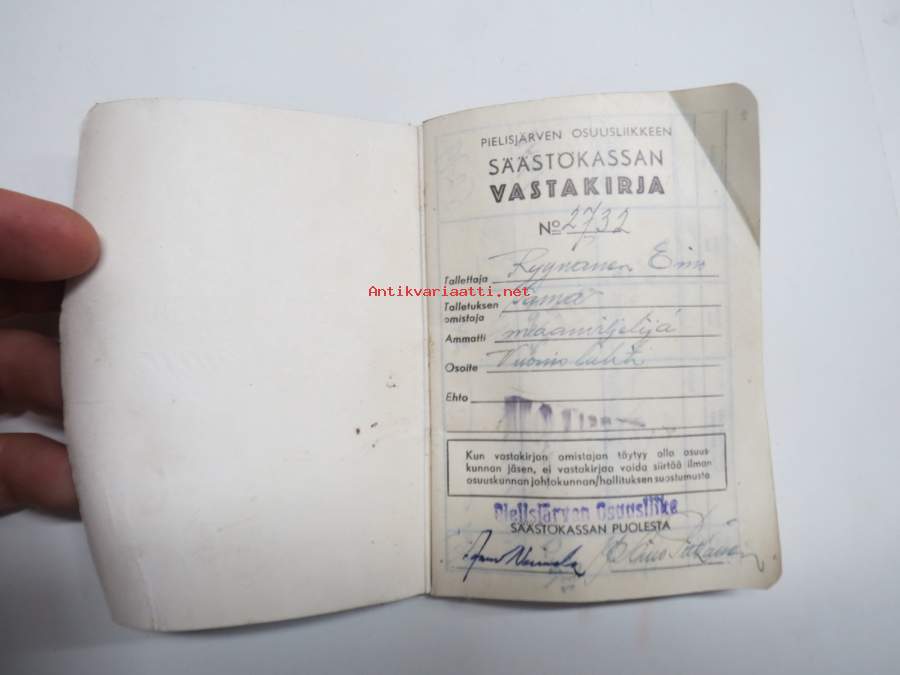 PIELISJÄRVEN OSUUSLIIKKEEN
SÄÄSTÖKASSAN
VASTAKIRJA
No 2732
Tallettaja Ryynänen Eino
Antikvariaatti.net
Talletuksen omistaja Sama
Ammatti maanviljelijä
Osoite Vuonislahti
Ehto
Kun vastakirjan omistajan täytyy olla osuus-
kunnan jäsen, ei vastakirjaa voida siirtää ilman
osuuskunnan johtokunnan/hallituksen suostumusta
Pielisjärven Osuusliike
SÄÄSTÖKASSAN PUOLESTA